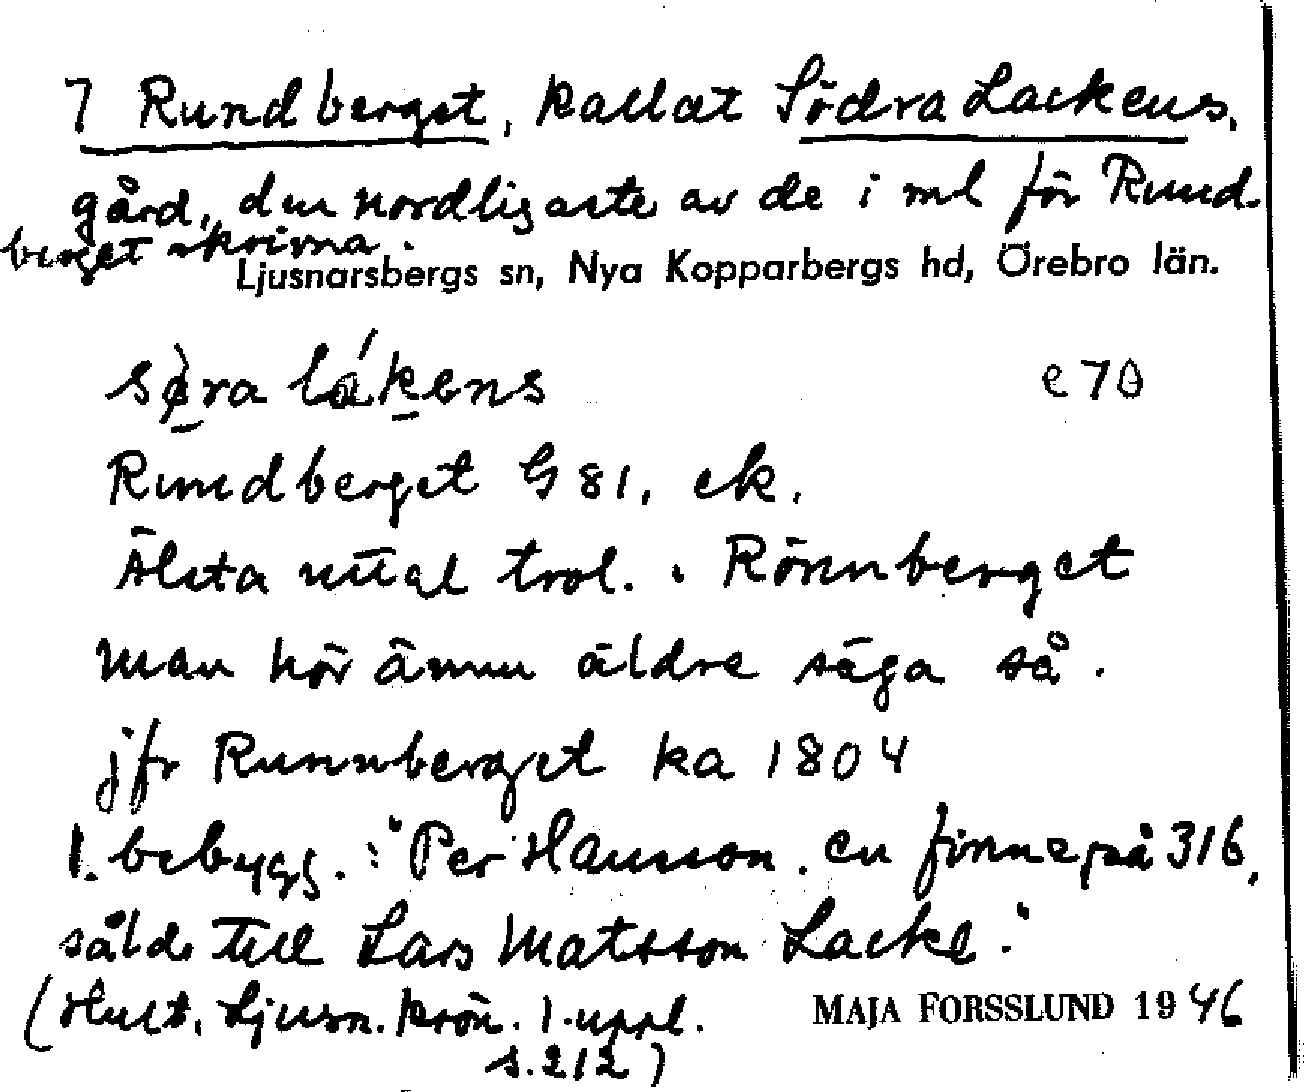 7 Rundberget, kallat Södra Lackens,
gård, den nordligaste av de i ml för Rund-
berget skrivna.
Ljusnarsbergs sn, Nya Kopparbergs hd, Örebro län.
sø̀ra lákens e70
Rundberget G 81, ek.
Älsta uttal trol. : Rönnberget
man hör ännu äldre säga så.
jfr Runnberget ka 1804
1. bebygg. : "Per Hansson, en finne på 316,
sålde till Lars Matsson Lacke."
(Hult, Ljusn. krön. 1. uppl.
s. 212)
MAJA FORSSLUND 1946